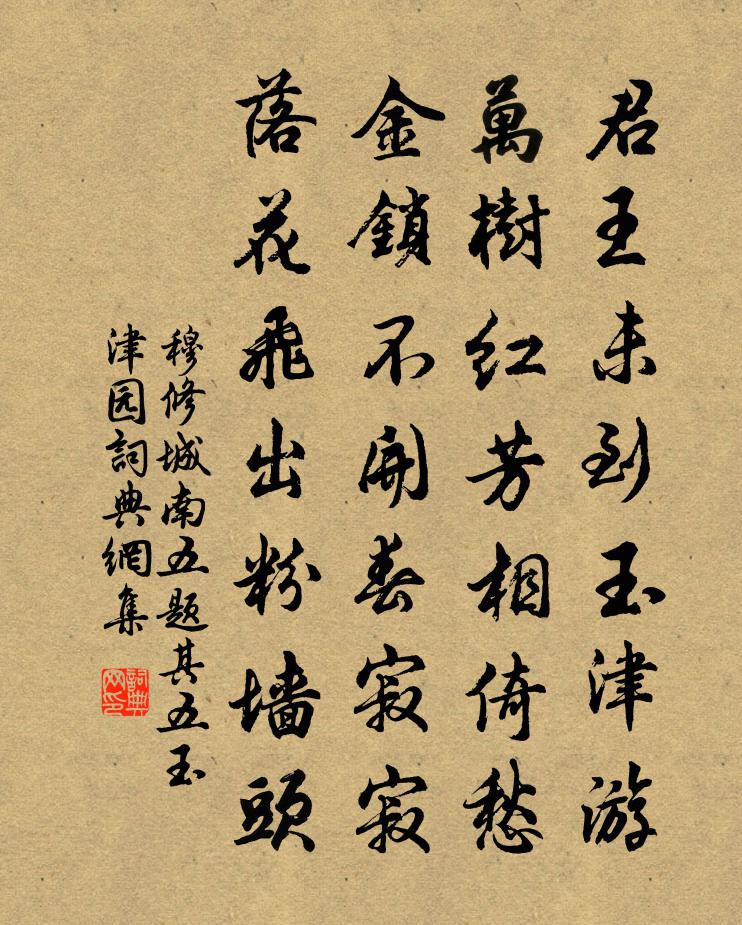 君王未到玉津游
萬樹红芳相倚愁
金鎖不開春寂寂
落花飛出粉墙頭
穆修城南五题其五玉
津园詞典網集
詞典网印